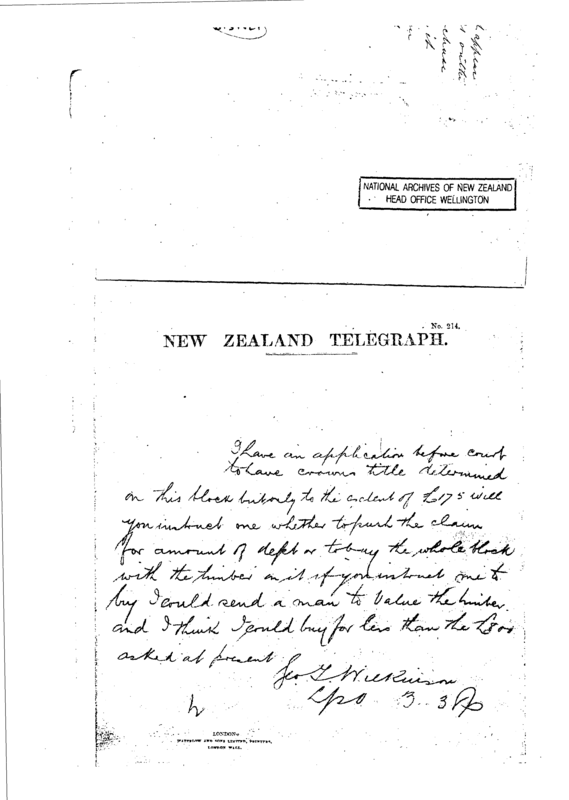 appear
with
chase
it
NATIONAL ARCHIVES OF NEW ZEALAND
HEAD OFFICE WELLINGTON
No. 214.
NEW ZEALAND TELEGRAPH.
I have an application before court
to have crowns title determined
on this block but only to the extent of £175 will
you instruct me whether to push the claim
for amount of debt or to buy the whole block
with the timber on it if you instruct me to
buy I could send a man to value the timber
and I think I could buy for less than the £800
asked at present
Geo T Wilkinson
LPO 3 3
LONDON:
WATERLOW AND SONS LIMITED, PRINTERS,
LONDON WALL.